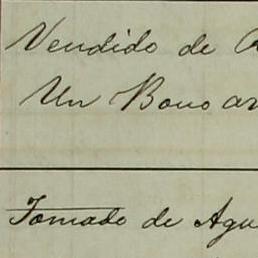 Vendido de
Un Bono
Tomado de Agu